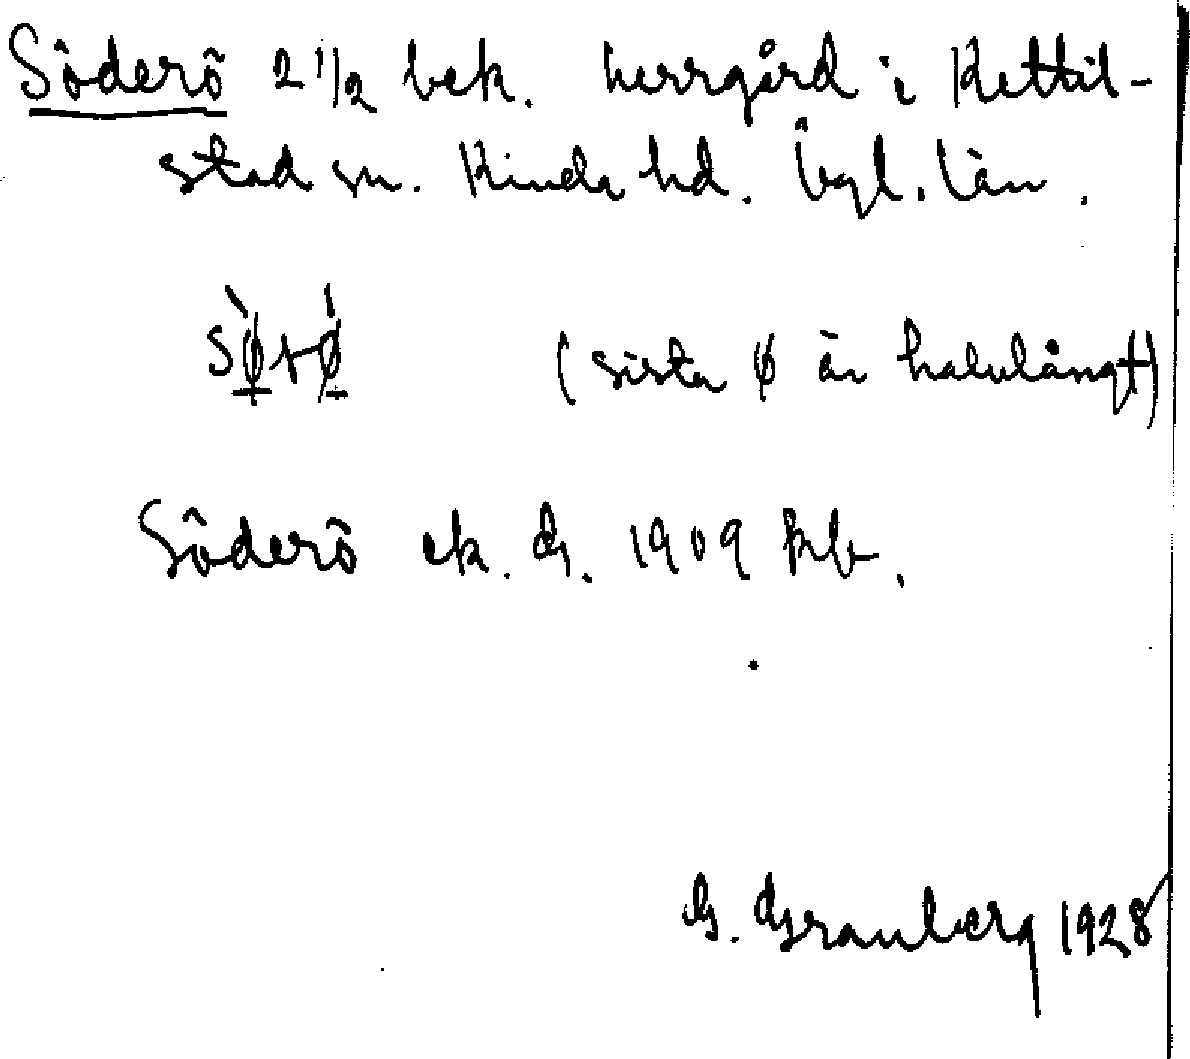 Söderö 2 1/2 bek. herrgård i Kettil-
stad sn. Kinda hd. Ögl. län.
(sista ø är halvlångt)
Söderö ek. G. 1909 kb.
G. Granberg 1928